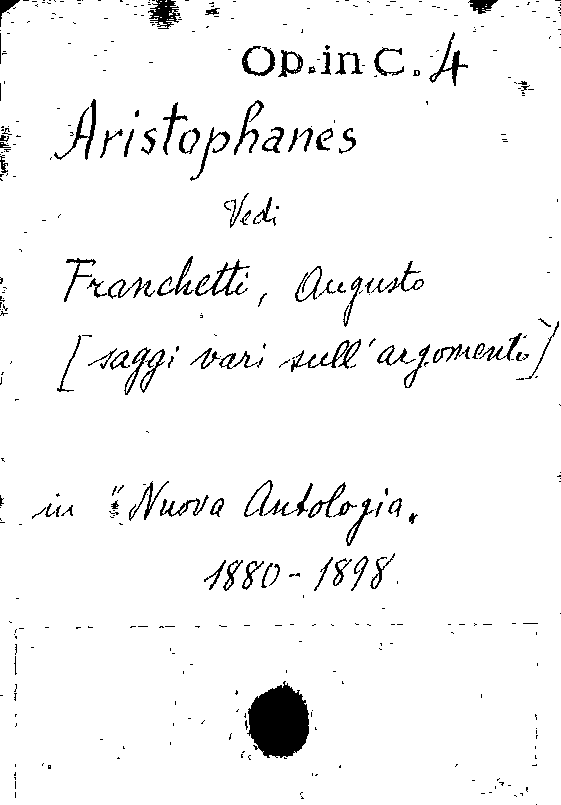 Op. in C. 4
Aristophanes
Vedi
Franchetti, Augusto
[saggi vari sull'argomento]
in "Nuova Antologia"
1880-1898.